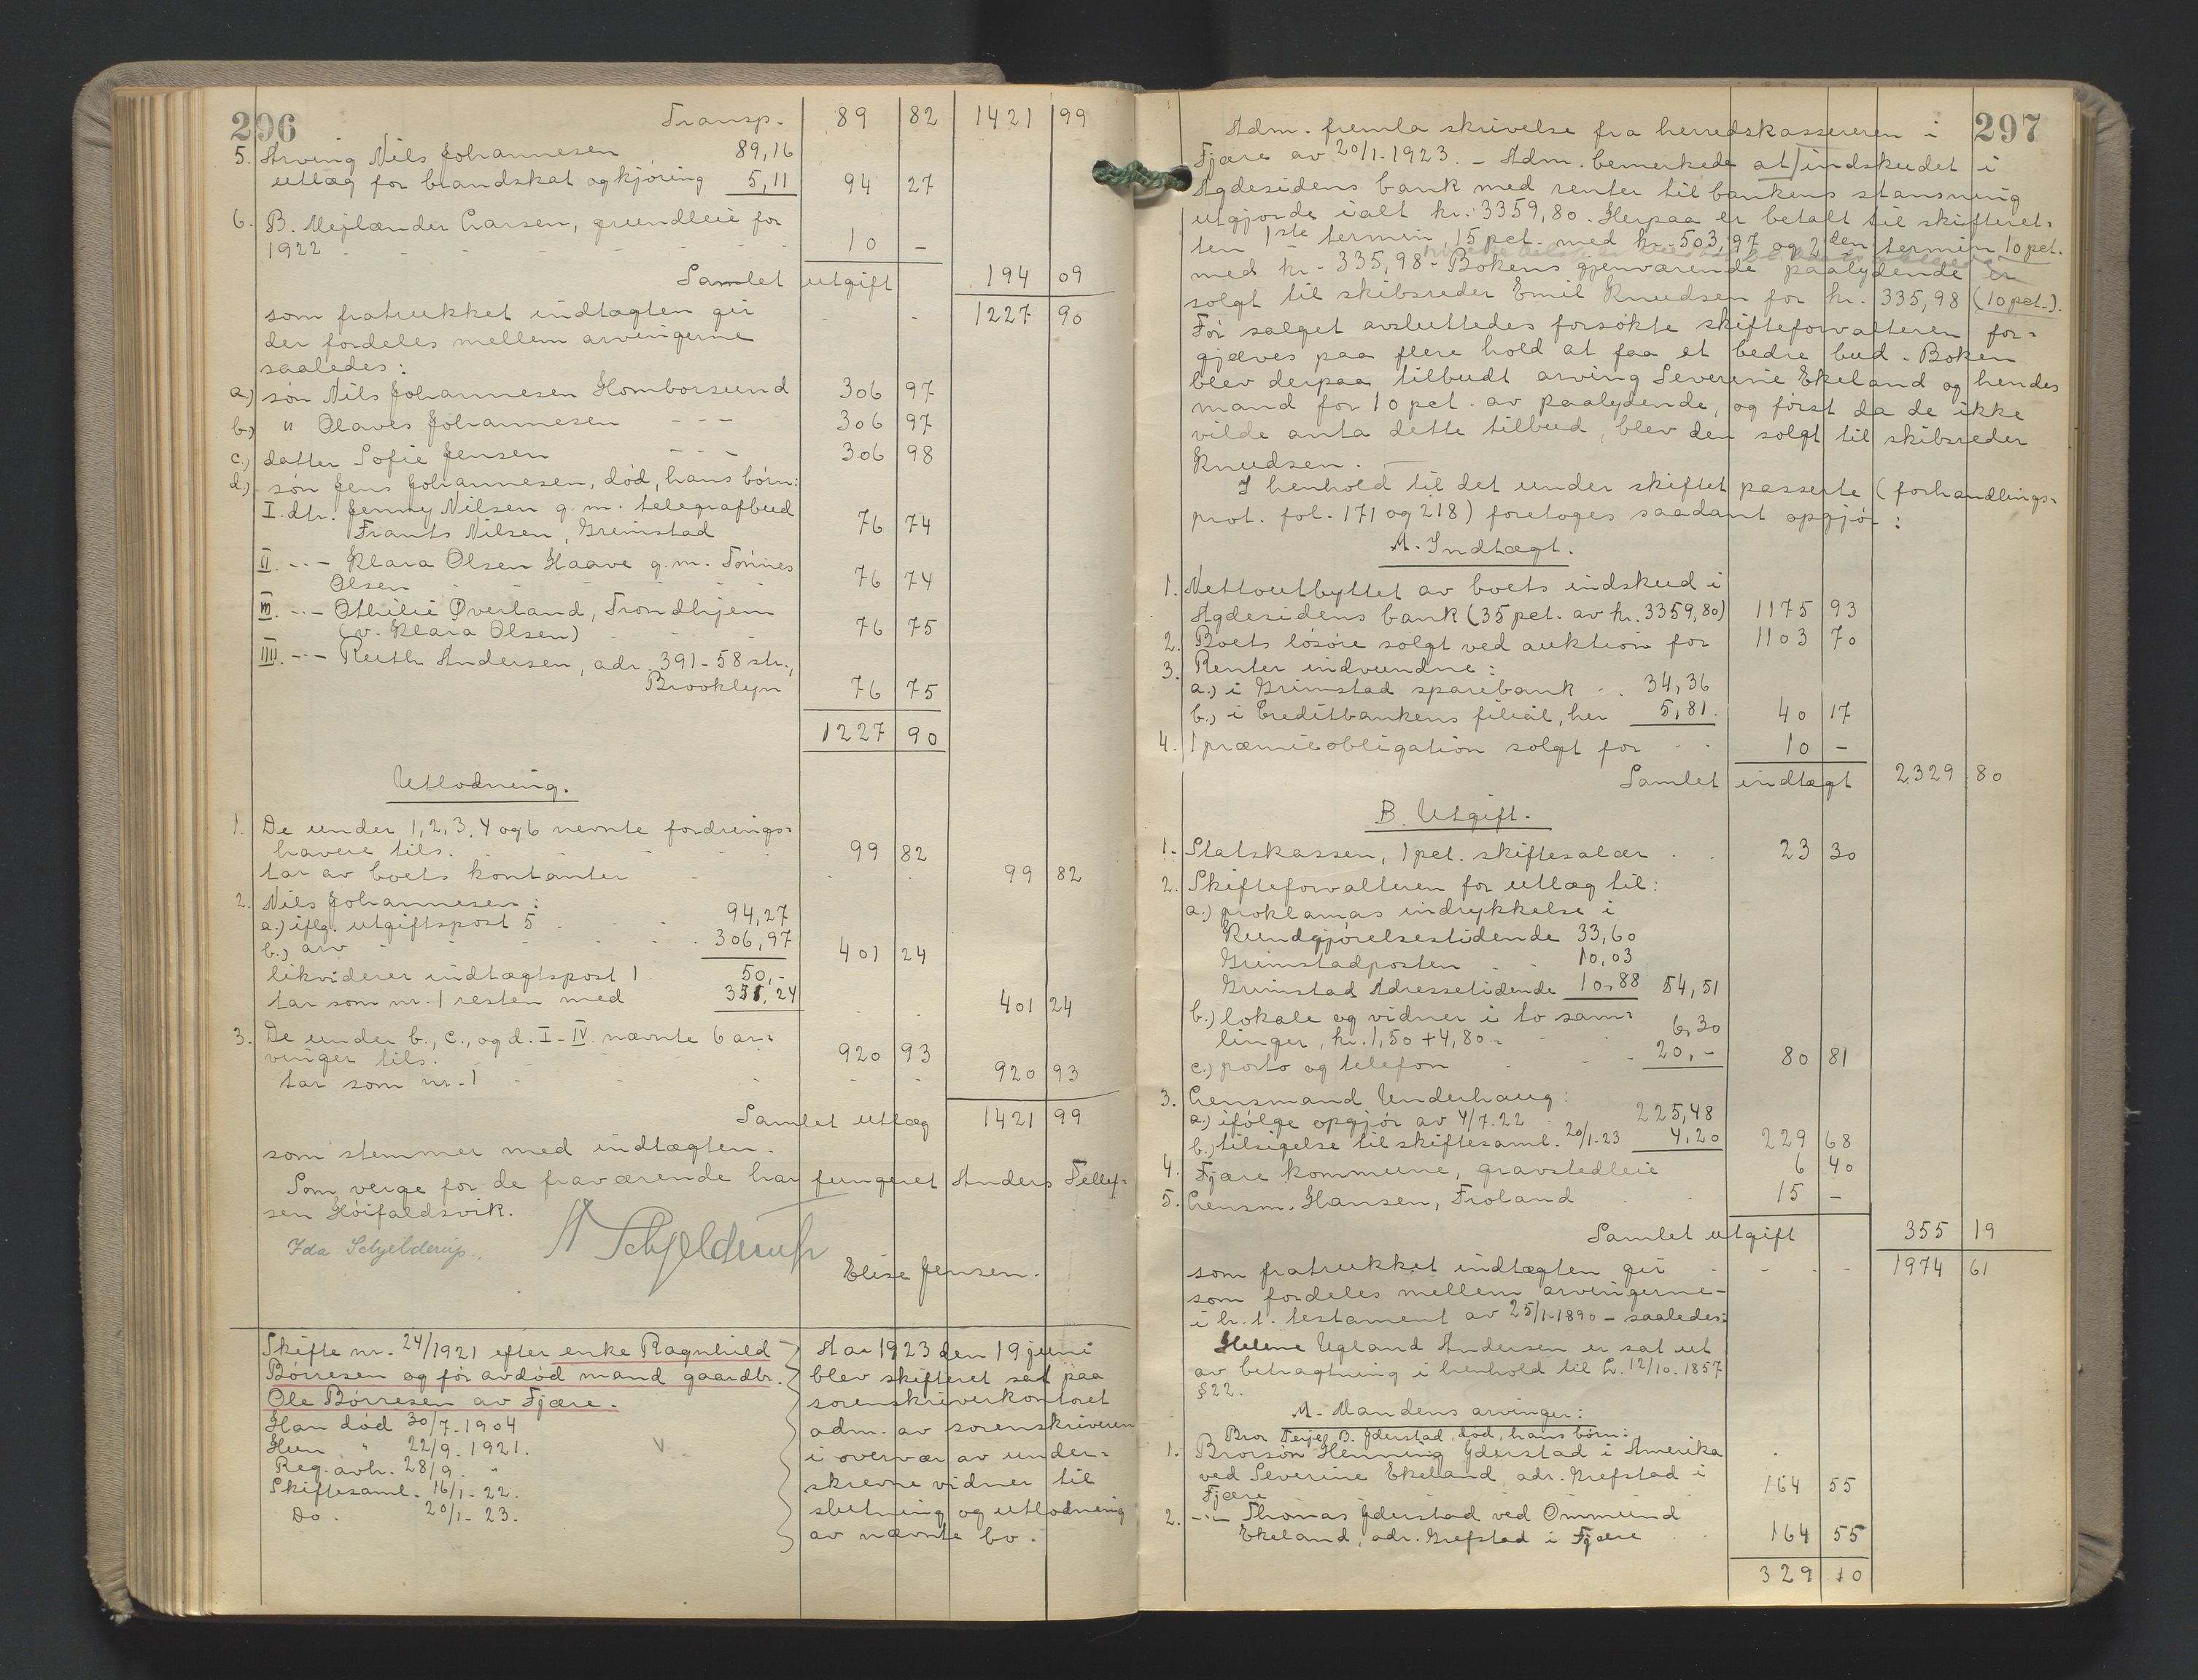 296
Transp. 89 82 1421 99
5. Arving Nils Johannesen 89,16
utlæg for brandskat og kjøring 5,11 94 27
6. B. Mejlænder Larsen, grundleie for
1922 10 -
Samlet utgift 194 09
som fratrukket indtægten gir 1227 90
der fordeles mellem arvingerne
saaledes:
a.) søn Nils Johannesen Homborsund 306 97
b.) " Olaves Johannesen - - - 306 97
c.) datter Sofie Jensen - - - 306 98
d.) søn Jens Johannesen, død, hans børn:
I. dtr. Jenny Nilsen g. m. telegrafbud
Frants Nilsen, Grimstad 76 74
II. -"- Klara Olsen Haave g. m. Tønnes
Olsen 76 74
III. -"- Othilie Øverland, Trondhjem
(v. Klara Olsen) 76 75
IIII. -"- Ruth Andersen, adr. 391-58 str.,
Brooklyn 76 75
1227 90
Utlodning.
1. De under 1, 2, 3, 4 og 6 nevnte fordrings=
havere tils. 99 82
tar av boets kontanter 99 82
2. Nils Johannesen:
a.) iflg. utgiftspost 5 94,27
b.) arv 306,97 401 24
likviderer indtægtspost 1 50,-
tar som nr. 1 resten med 351,24 401 24
3. De under b., c., og d. I-IV nævnte 6 ar=
vinger tils. 920 93
tar som nr. 1 920 93
Samlet utlæg 1421 99
som stemmer med indtægten.
Som verge for de fraværende har fungeret Anders Tellef=
sen Høifaldsvik.
Ida Schjelderup. Schjelderup
Elise Jensen.
Skifte nr. 24/1921 efter enke Ragnhild
Børresen og før avdød mand gaardbr.
Ole Børresen av Fjære.
Han død 30/7-1904
Hun " 22/9-1921.
Reg. avh. 28/9 - "
Skiftesaml. 16/1-22.
Do. 20/1-23.
Aar 1923 den 19 juni
blev skifteret sat paa
sorenskriverkontoret
adm. av sorenskriveren
i overvær av under=
skrevne vidner til
slutning og utlodning
av nævnte bo.
297
Adm. fremla skrivelse fra herredskassereren i
Fjære av 20/1-1923. - Adm. bemerkede at indskudet i
Agdesidens bank med renter til bankens stansning
utgjorde ialt kr. 3359,80. Herpaa er betalt til skifteret=
ten 1ste termin, 15 pct. med kr. 503,97 og 2den termin 10 pct.
med kr. 335,98. Bokens gjenværende paalydende er
solgt til skibsreder Emil Knudsen for kr. 335,98 (10 pct.).
Før salget avsluttedes forsøkte skifteforvalteren for=
gjæves paa flere hold at faa et bedre bud. Boken
blev derpaa tilbudt arving Severine Ekeland og hendes
mand for 10 pct. av paalydende, og først da de ikke
vilde anta dette tilbud, blev den solgt til skibsreder
Knudsen.
I henhold til det under skiftet passerte (forhandlings=
prot. fol. 171 og 218) foretoges saadant opgjør:
A. Indtægt.
1. Nettoutbyttet av boets indskud i
Agdesidens bank (35 pct. av kr. 3359,80) 1175 93
2. Boets løsøre solgt ved auktion for 1103 70
3. Renter indvundne:
a.) i Grimstad sparebank 34,36
b.) i Creditbankens filial, her 5,81 40 17
4. 1 præmieobligation solgt for 10 -
Samlet indtægt 2329 80
B. Utgift.
1. Statskassen, 1 pct. skiftesalær 23 30
2. Skifteforvalteren for utlæg til:
a.) proklamas indrykkelse i
Kundgjørelsestidende 33,60
Grimstadposten 10,03
Grimstad Adressetidende 10,88 54,51
b.) lokale og vidner i to sam=
linger, kr. 1,50 + 4,80 = 6,30
c.) porto og telefon 20,- 80 81
3. Lensmand Underhaug:
a.) ifølge opgjør av 4/7.22 225,48
b.) tilsigelse til skiftesaml. 20/1-23 4,20 229 68
4. Fjære kommune, gravstedleie 6 40
5. Lensm. Hansen, Froland 15 -
Samlet utgift 355 19
som fratrukket indtægten gir 1974 61
som fordeles mellem arvingerne -
i h. t. testament av 25/1-1890 - saaledes:
Helene Ugland Andersen er sat ut
av betragtning i henhold til L. 12/10.1857
§22.
A. Mandens arvinger:
Bror Terjes B. Yderstad, død, hans børn:
1. Brorsøn Henning Yderstad i Amerika
ved Severine Ekeland, adr. Grefstad i
Fjære 164 55
2. -"- Thomas Yderstad ved Ommund
Ekeland, adr. Grefstad i Fjære 164 55
329 10